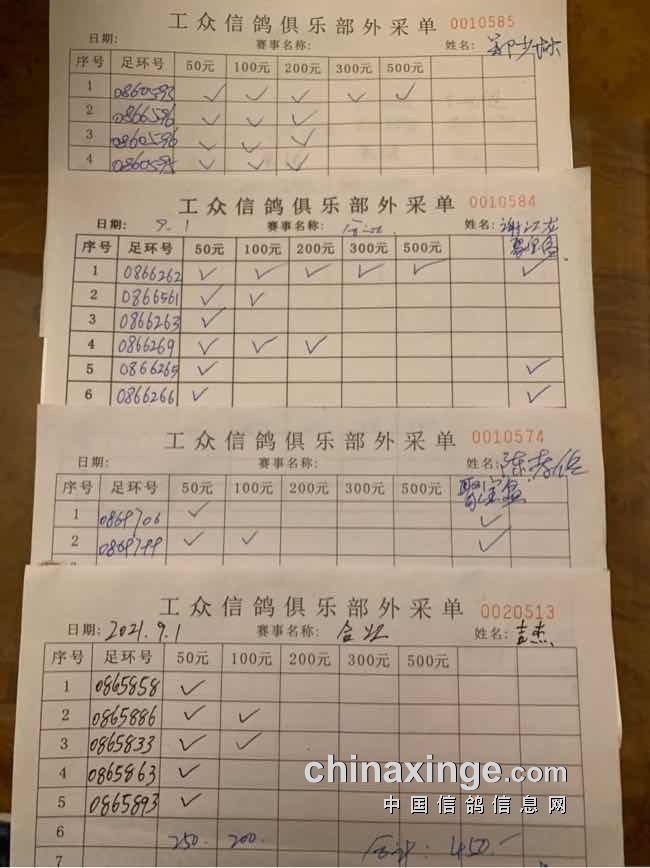 工众信鸽俱乐部外采单 0010585
日期: 赛事名称: 姓名:
序号 足环号 50元 100元 200元 300元 500元
1 0860593 ✓ ✓ ✓ ✓ ✓
2 0866596 ✓ ✓ ✓
3 0860596 ✓ ✓ ✓
4 ✓ ✓ ✓
工众信鸽俱乐部外采单 0010584
日期: 9.1 赛事名称: 姓名: 谢江龙
序号 足环号 50元 100元 200元 300元 500元
1 0866262 ✓ ✓ ✓ ✓ ✓ ✓
2 0866561 ✓ ✓
3 0866263 ✓
4 0866269 ✓ ✓ ✓
5 0866265 ✓ ✓
6 0866266 ✓ ✓
工众信鸽俱乐部外采单 0010574
日期: 赛事名称: 姓名:
序号 足环号 50元 100元 200元 300元 500元 聚宝盆
1 0869706 ✓ ✓
2 0869799 ✓ ✓ ✓
工众信鸽俱乐部外采单 0020513
日期: 2021.9.1 赛事名称: 姓名: 吉杰
序号 足环号 50元 100元 200元 300元 500元
1 0865858 ✓
2 0865886 ✓ ✓
3 0865833 ✓ ✓
4 0865863 ✓
5 0865893 ✓
6 250. 200. 合计: 450.-
7
chinaxinge.com
中国信鸽信息网